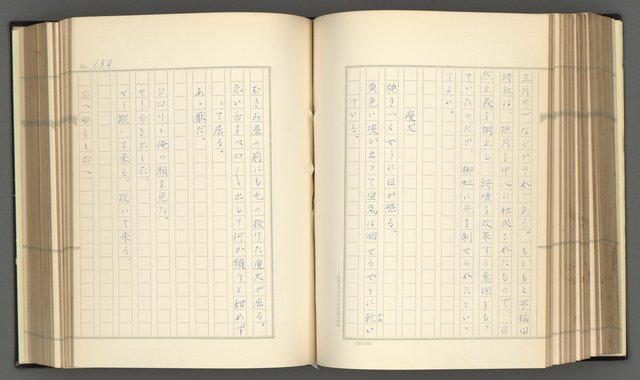 五月号）などがそれである。もともと早稲田
詩社は、抱月を中心に結成されたもので、自
然主義を樹立し、詩壇を改革する意図をもっ
ていたのだが、御風に先を制せられたといっ
てよい。
瘦犬
焼きつくやうに日が照る。
黄色い埃が立って空気は咽せるやうに乾い
ている。
No. 150
むきみ屋の前に毛の抜けた瘦犬が居る。
赤い舌をペロペロ出して何か頻りと甜めず
って居る。
あゝ厭だ。
ジロリと俺の顔を見た。
やー歩き出した。
やー蹤いて来る。蹤いて来る。
左へ廻ると右へ。